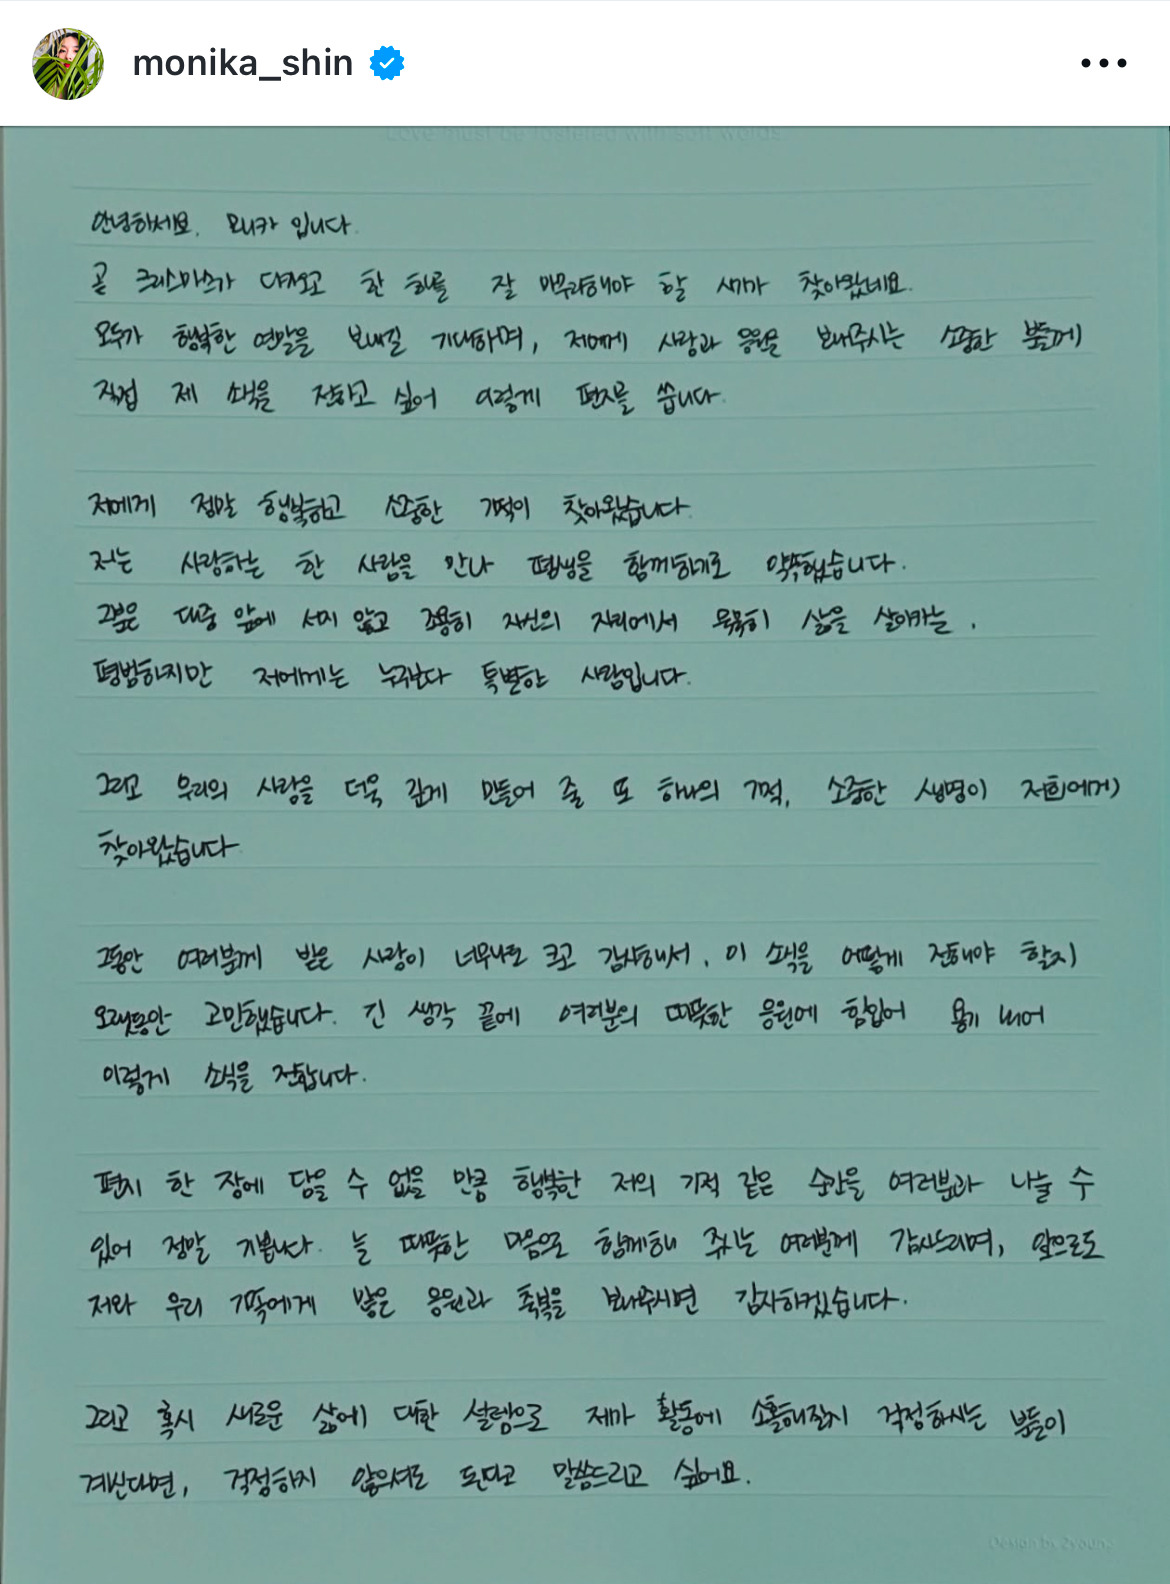 monika_shin
Love must be fostered with soft words
안녕하세요. 모니카 입니다.
곧 크리스마스가 다가오고 한 해를 잘 마무리해야 할 시기가 찾아왔네요.
모두가 행복한 연말을 보내길 기대하며, 저에게 사랑과 응원을 보내주시는 소중한 분들께
직접 제 소식을 전하고 싶어 이렇게 편지를 씁니다.
저에게 정말 행복하고 소중한 기적이 찾아왔습니다.
저는 사랑하는 한 사람을 만나 평생을 함께하기로 약속했습니다.
그분은 대중 앞에 서지 않고 조용히 자신의 자리에서 묵묵히 삶을 살아가는,
평범하지만 저에게는 누구보다 특별한 사람입니다.
그리고 우리의 사랑을 더욱 깊게 만들어 줄 또 하나의 기적, 소중한 생명이 저희에게
찾아왔습니다.
그동안 여러분께 받은 사랑이 너무나도 크고 감사해서, 이 소식을 어떻게 전해야 할지
오랫동안 고민했습니다. 긴 생각 끝에 여러분의 따뜻한 응원에 힘입어 용기 내어
이렇게 소식을 전합니다.
편지 한 장에 담을 수 없을 만큼 행복한 저의 기적 같은 순간을 여러분과 나눌 수
있어 정말 기쁩니다. 늘 따뜻한 마음으로 함께해 주시는 여러분께 감사드리며, 앞으로도
저와 우리 가족에게 많은 응원과 축복을 보내주시면 감사하겠습니다.
그리고 혹시 새로운 삶에 대한 설렘으로 제가 활동에 소홀해질지 걱정하시는 분들이
계신다면, 걱정하지 않으셔도 된다고 말씀드리고 싶어요.
Design by 2young